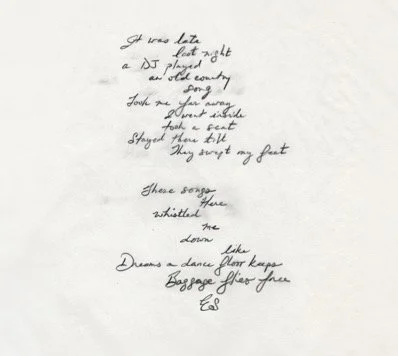 It was late
last night
a DJ played
an old country
song
Took me far away
I went inside
took a seat
Stayed there till
They swept my feet
These songs
Here
whistled
me
down
like
Dreams a dance floor keeps
Baggage flies free
ES